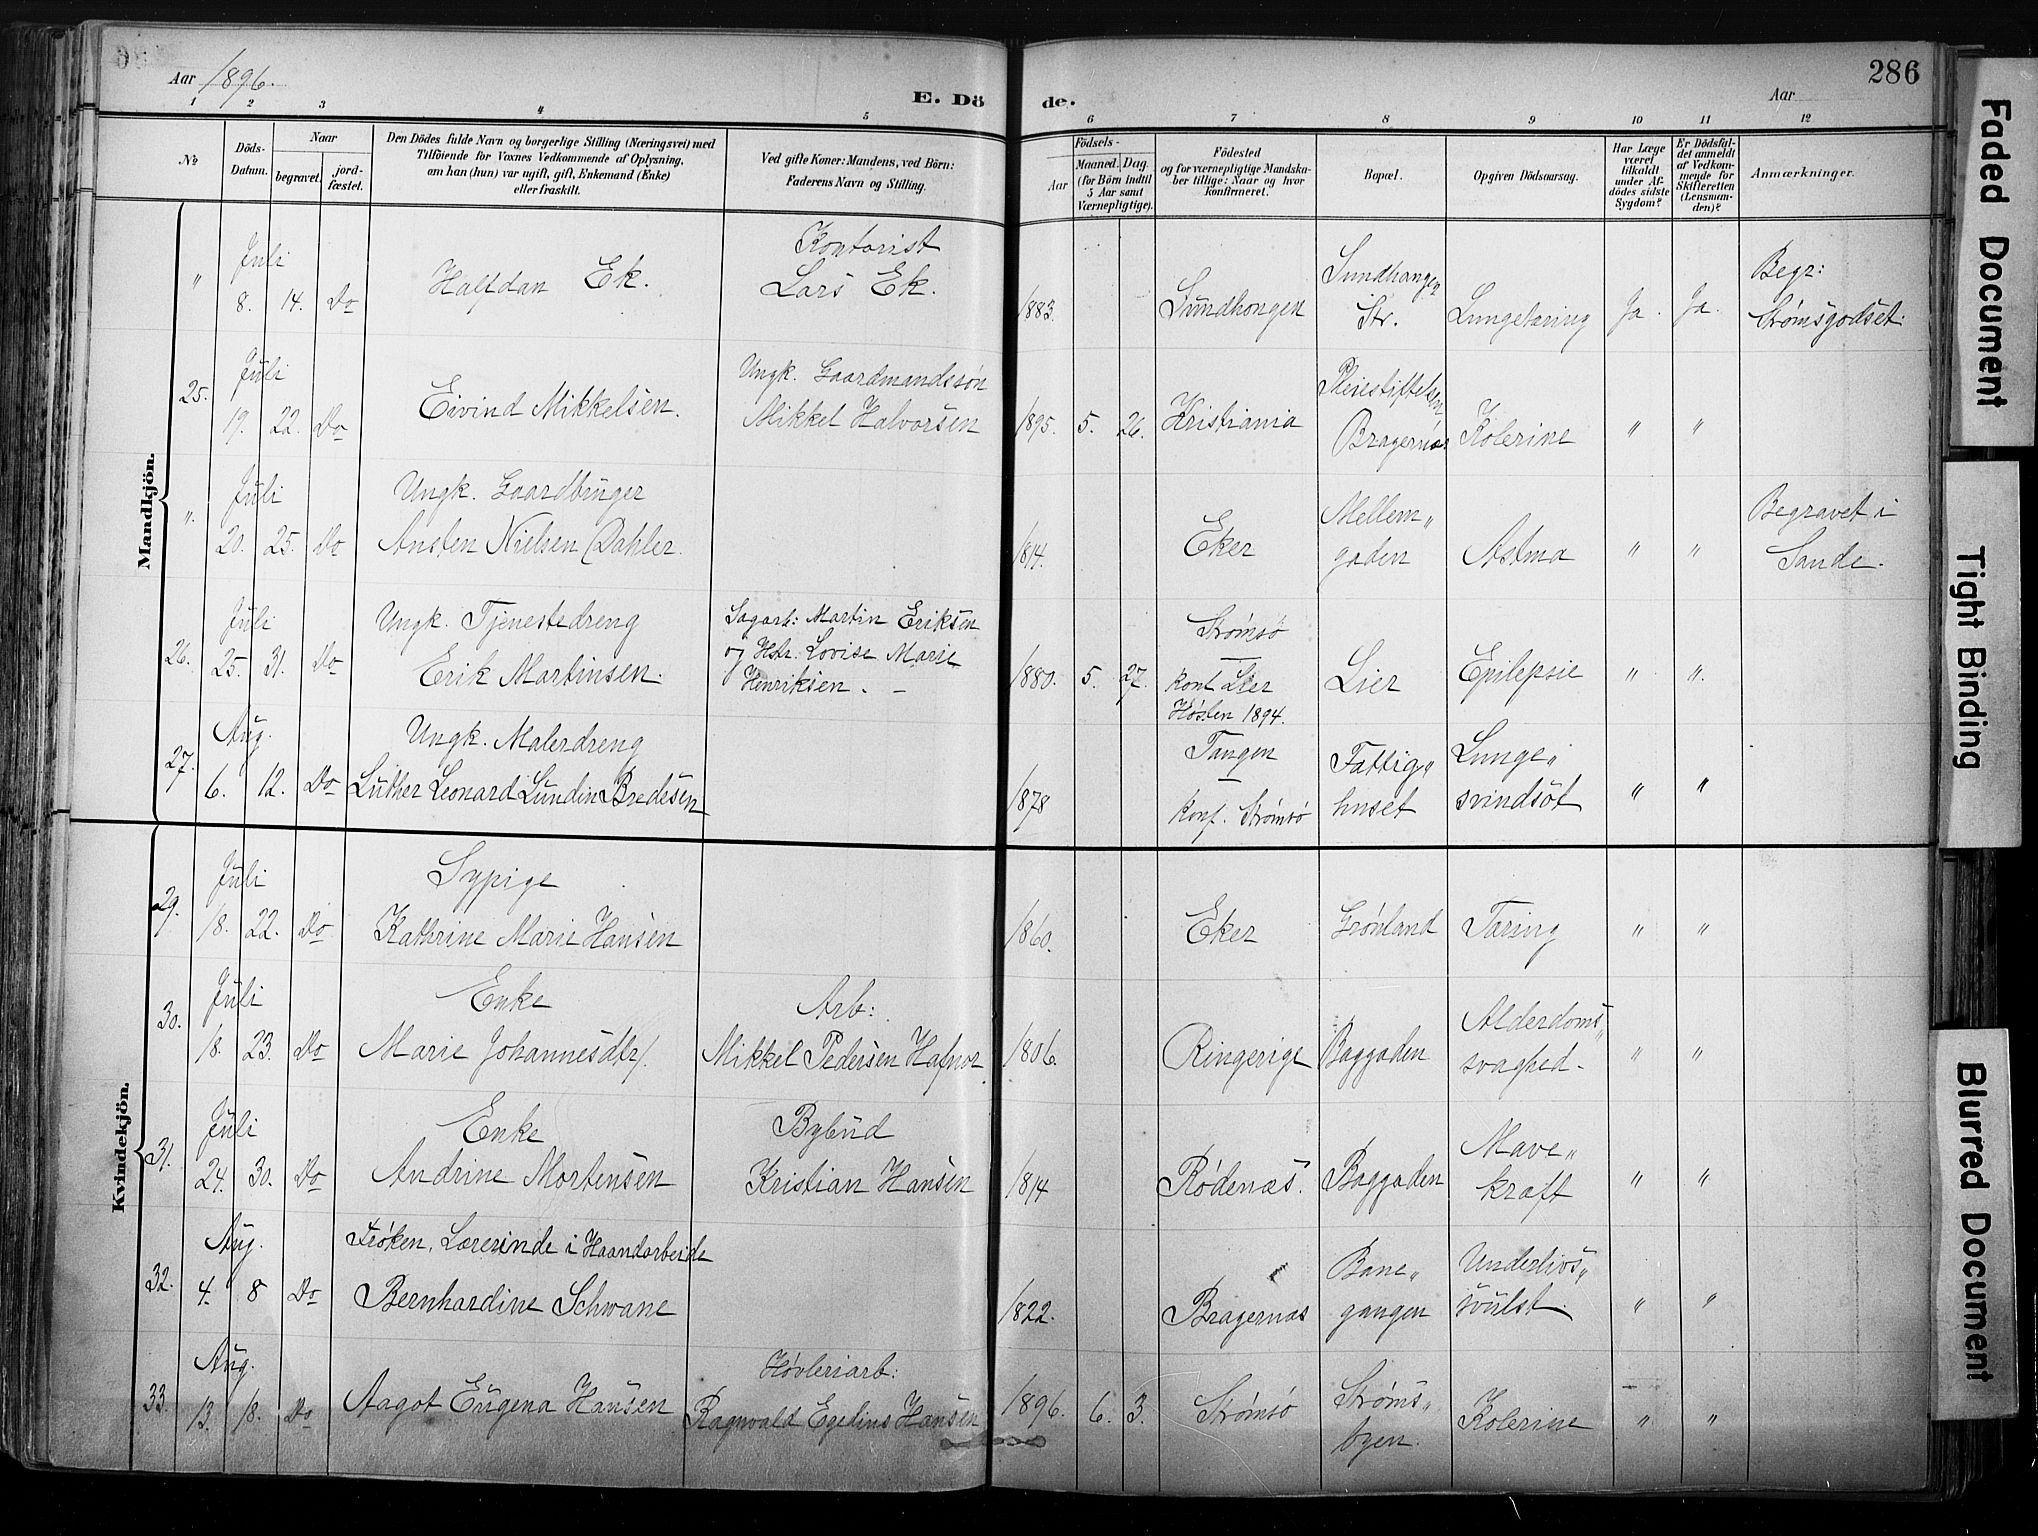 Aar 1896.
E. Dö
de.
Aar
286
1 2 3 4 5 6 7 8 9 10 11 12
No
Döds-Datum.
Naar
begravet.
jordfæstet.
Den Dödes fulde Navn og borgerlige Stilling (Næringsvei) med
Tilföiende for Voxnes Vedkommende af Oplysning,
om han (hun) var ugift, gift, Enkemand (Enke)
eller fraskilt.
Ved gifte Koner: Mandens, ved Börn:
Faderens Navn og Stilling.
Födsels-
Aar
Maaned. Dag.
(for Börn indtil
5 Aar samt
Værnepligtige).
Födested
og for værnepligtige Mandska-
ber tillige: Naar og hvor
konfirmeret.
Bopæl.
Opgiven Dödsaarsag.
Har Læge
været
tilkaldt
under Af-
dödes sidste
Sygdom?
Er Dödsfal-
det anmeldt
af Vedkom-
mende for
Skifteretten
(Lensman-
den)?
Anmærkninger.
Mandkjön.
" Juli 8. 14. Do Halfdan Ek. Kontorist Lars Ek. 1883. Sundhongen Sundhangen Str. Lungetæring Ja. Ja. Begr: Strømsgodset.
25. Juli 19. 22. Do Eivind Mikkelsen. Ungk. Gaardmandssøn Mikkel Halvorsen 1895. 5. 26. Kristiania Pleiestiftelsen Bragernæs Kolerine " "
" Juli 20. 25. Do Ungk. Gaardbruger Ansten Nielsen Dahler. 1814. Eker Mellem„ gaden Astma " " Begravet i Sande.
26. Juli 25. 31. Do Ungk. Tjenestedreng Erik Martinsen. Sagarb: Martin Eriksen og Hstr. Lovise Marie Henriksen. - 1880. 5. 27. Strømsø konf Lier Høsten 1894. Lier Epilepsie " "
27. Aug. 6. 12. Do Ungk. Malerdreng Luther Leonard Lundin Bredesen 1878 Tangen konf. Strømsø Fattig„ huset Lunge„ svindsot " "
Kvindekjön.
29. Juli 18. 22. Do Sypige Kathrine Marie Hansen 1860. Eker Grønland Tæring " "
30. Juli 18. 23. Do Enke Marie Johannesdtr. Arb: Mikkel Pedersen Hafnor 1806. Ringerige Baggaden Alderdoms„ svaghed- " "
31. Juli 24. 30. Do Enke Andrine Mortensen Bybud Kristian Hansen 1814 Rødenæs. Baggaden Mave„ kræft " "
32. Aug. 4. 8 Do Frøken, Lærerinde i Haandarbeide Bernhardine Schwane 1822. Bragernæs Bane„ gangen Underlivs„ svulst. " "
33. Aug. 13. 18. Do Aagot Eugena Hansen Høvleriarb. Ragnvald Egelius Hansen 1896. 6. 3. Strømsø Strøms„ byen. Kolerine " "
Faded Document
Tight Binding
Blurred Document